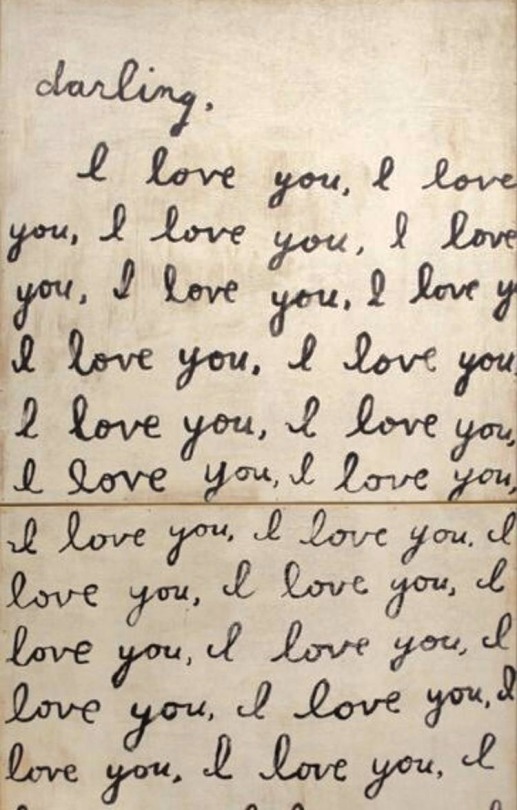 darling,
I love you, I love
you, I love you, I love
you, I love you, I love y
I love you, I love you,
I love you, I love you,
I love you, I love you,
I love you, I love you, I
love you, I love you, I
love you, I love you, I
love you, I love you, I
love you, I love you, I